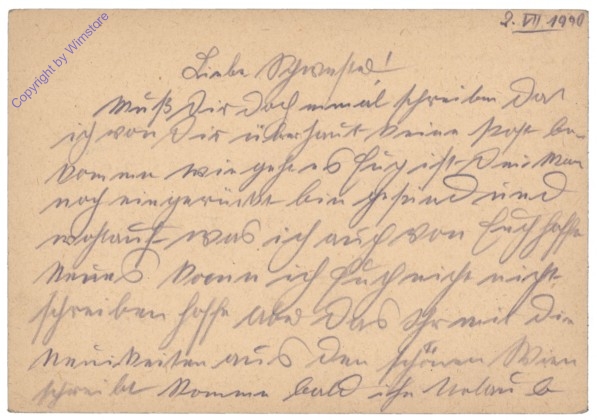 2. VII 1990
Liebe Schwester!
Muß Dir doch einmal schreiben Das
ich von Dir überhaut keine Post be-
komme wie geht es Euch ist Dein Man
noch eingerückt bin gesund und
wohlauf was ich auch von Euch hoffe
Neues kann ich Euch nicht nicht
schreiben hoffe aber Das Ihr mir die
Neuikeiten aus den schönen Wien
schreibt komme bald in Urlaub
Copyright by Wimstare